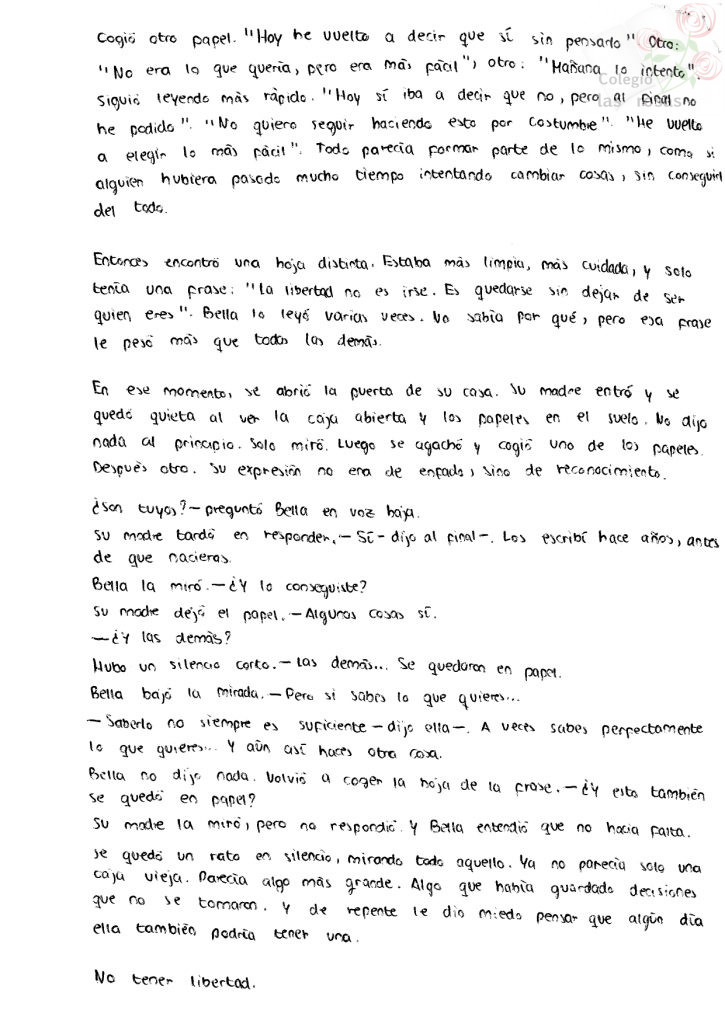 Cogió otro papel. "Hoy he vuelto a decir que sí sin pensarlo" Otro:
"No era lo que quería, pero era más fácil", otro: "Mañana lo intento".
Siguió leyendo más rápido. "Hoy sí iba a decir que no, pero al final no
he podido". "No quiero seguir haciendo esto por costumbre". "He vuelto
a elegir lo más fácil". Todo parecía formar parte de lo mismo, como si
alguien hubiera pasado mucho tiempo intentando cambiar cosas, sin conseguirl
del todo.
Entonces encontró una hoja distinta. Estaba más limpia, más cuidada, y solo
tenía una frase: "La libertad no es irse. Es quedarse sin dejar de ser
quien eres". Bella lo leyó varias veces. No sabía por qué, pero esa frase
le pesó más que todas las demás.
En ese momento, se abrió la puerta de su casa. Su madre entró y se
quedó quieta al ver la caja abierta y los papeles en el suelo. No dijo
nada al principio. Solo miró. Luego se agachó y cogió uno de los papeles.
Después otro. Su expresión no era de enfado, sino de reconocimiento.
¿Son tuyos? — preguntó Bella en voz baja.
Su madre tardó en responder. — Sí - dijo al final -. Los escribí hace años, antes
de que nacieras.
Bella la miró. — ¿Y lo conseguiste?
Su madre dejó el papel. — Algunas cosas sí.
— ¿Y las demás?
Hubo un silencio corto. — Las demás... Se quedaron en papel.
Bella bajó la mirada. — Pero si sabes lo que quieres...
— Saberlo no siempre es suficiente — dijo ella —. A veces sabes perfectamente
lo que quieres... Y aún así haces otra cosa.
Bella no dijo nada. Volvió a coger la hoja de la frase. — ¿Y esta también
se quedó en papel?
Su madre la miró, pero no respondió. Y Bella entendió que no hacía falta.
Se quedó un rato en silencio, mirando todo aquello. Ya no parecía solo una
caja vieja. Parecía algo más grande. Algo que había guardado decisiones
que no se tomaron. Y de repente le dio miedo pensar que algún día
ella también podría tener una.
No tener libertad.
Colegio